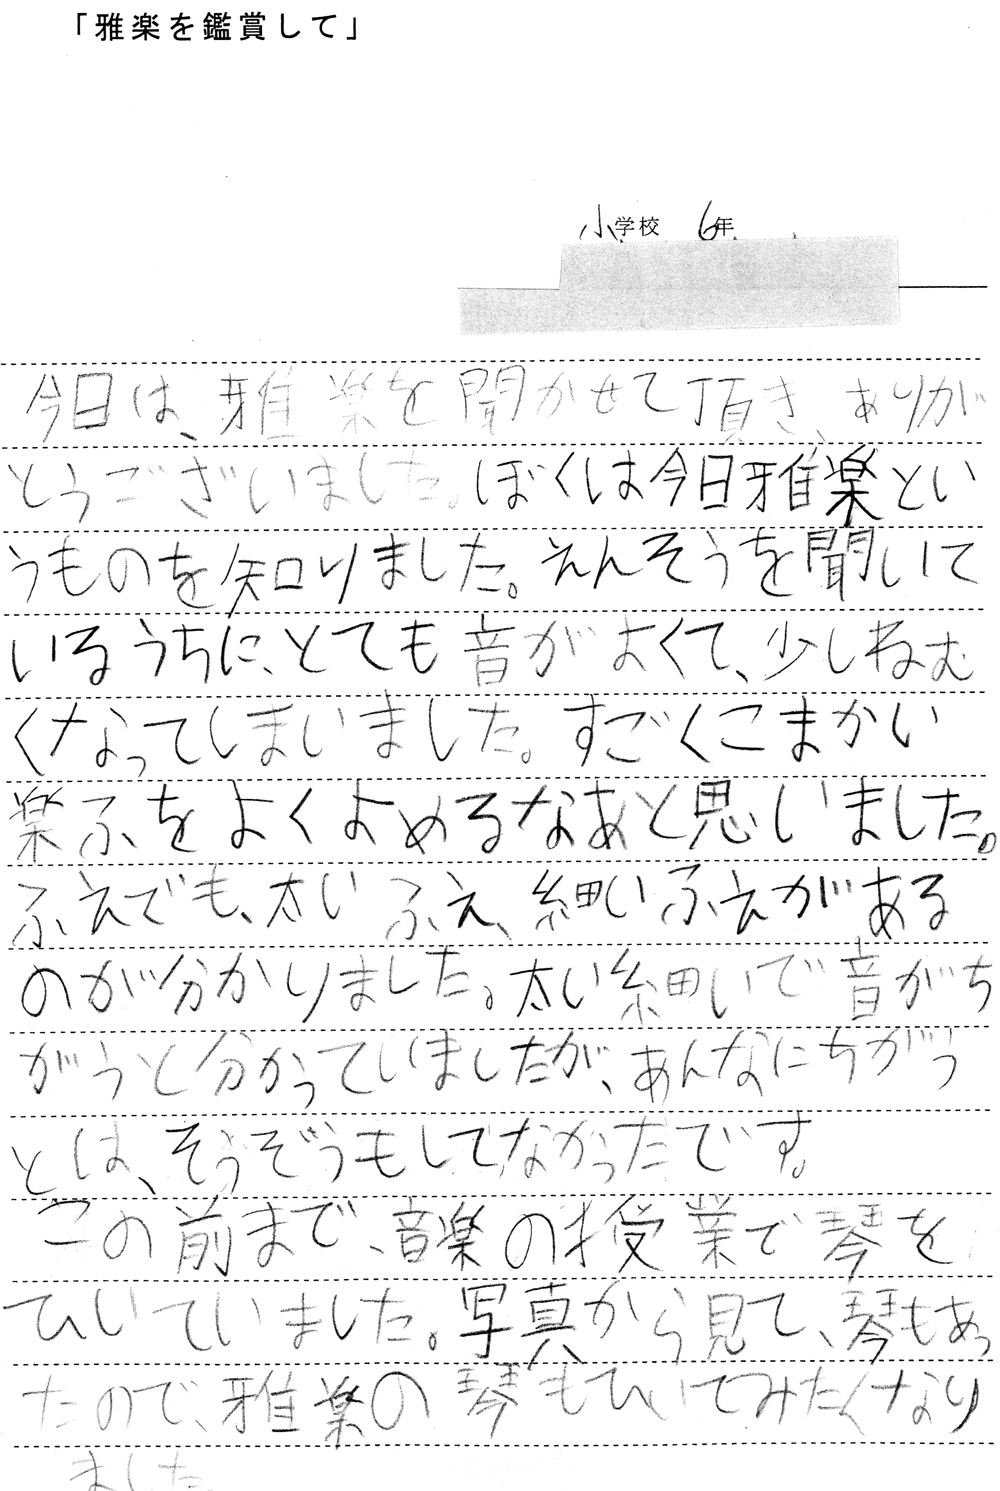 「雅楽を鑑賞して」
小学校 6年
今日は、雅楽を聞かせて頂き、ありが
とうございました。ぼくは今日雅楽とい
うものを知りました。えんそうを聞いて
いるうちに、とても音がよくて、少しねむ
くなってしまいました。すごくこまかい
楽ふをよくよめるなあと思いました。
ふえでも、太いふえ、細いふえがある
のが分かりました。太い細いで音がち
がうと分かっていましたが、あんなにちがう
とは、そうぞうもしてなかったです。
この前まで、音楽の授業で琴を
ひいていました。写真から見て、琴もあっ
たので、雅楽の琴もひいてみたくなり
ました。